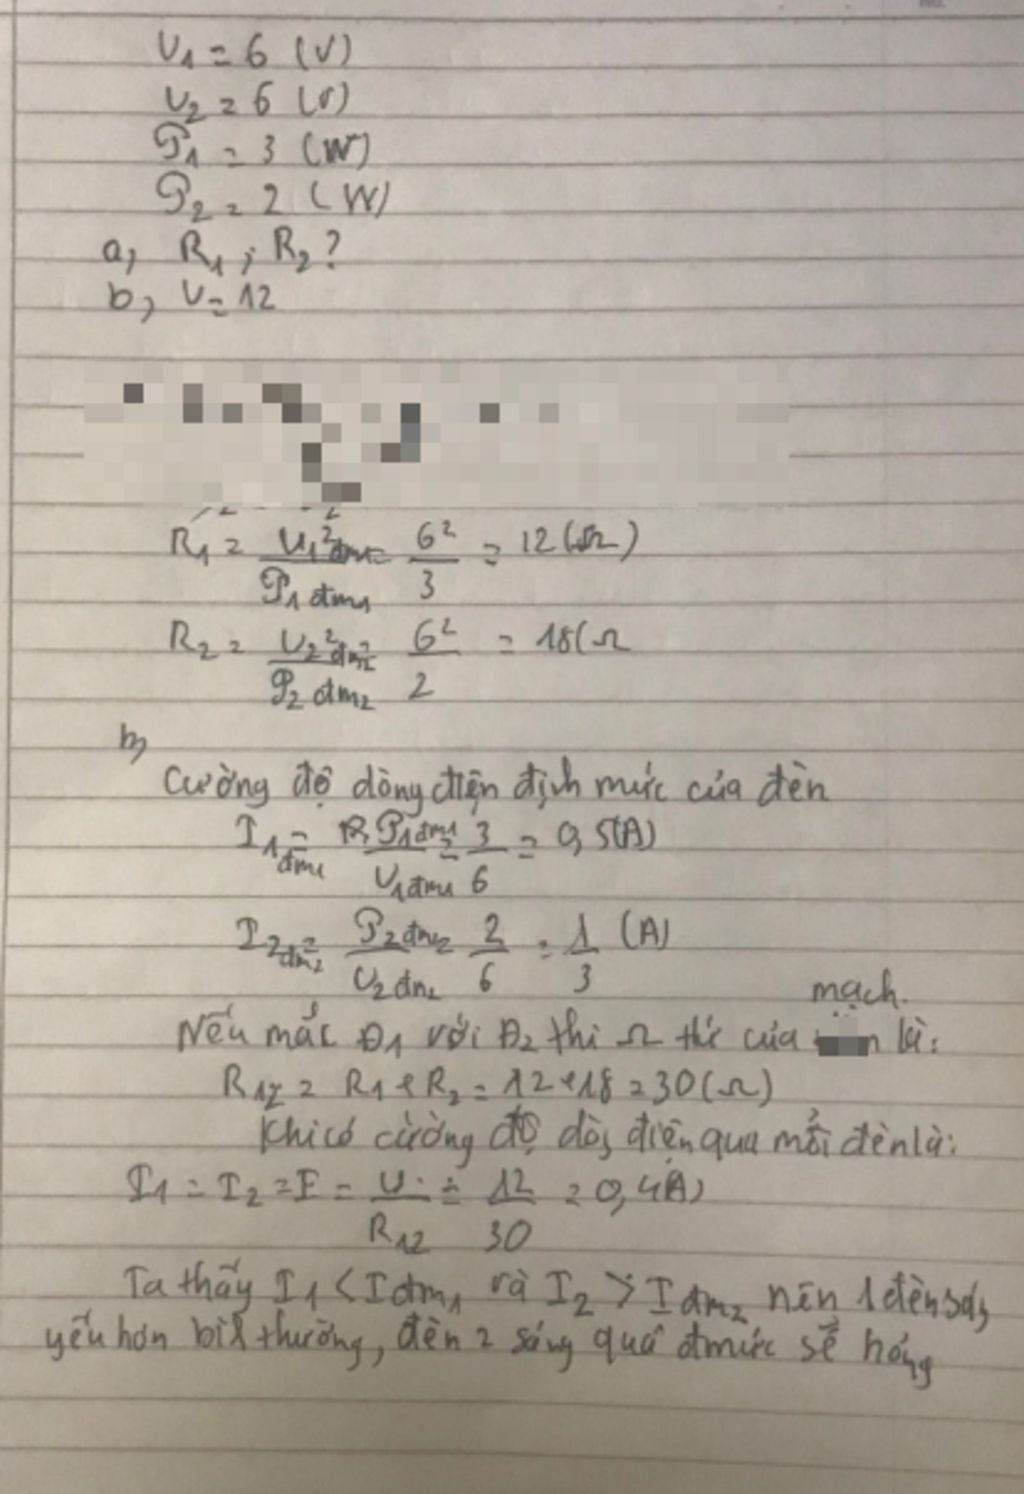 U₁ = 6 (V)
U₂ = 6 (V)
P₁ = 3 (W)
P₂ = 2 (W)
a, R₁ ; R₂ ?
b, U = 12
R₁ = U₁²đm₁ / P₁đm₁ = 6² / 3 = 12 (Ω)
R₂ = U₂²đm₂ / P₂đm₂ = 6² / 2 = 18(Ω
b,
Cường độ dòng điện định mức của đèn
I₁đm₁ = P₁đm₁ / U₁đm₁ = 3 / 6 = 0,5(A)
I₂đm₂ = P₂đm₂ / U₂đm₂ = 2 / 6 = 1 / 3 (A)
mạch.
Nếu mắc Đ₁ với Đ₂ thì Ω tđ của là:
R₁₂ = R₁ + R₂ = 12 + 18 = 30 (Ω)
Khi có cường độ dòg điện qua mỗi đèn là:
I₁ = I₂ = I = U / R₁₂ = 12 / 30 = 0,4(A)
Ta thấy I₁ < Iđm₁ và I₂ > Iđm₂ nên 1 đènság
yếu hơn bìh thường, đèn 2 sáng quá đmức sẽ hỏng